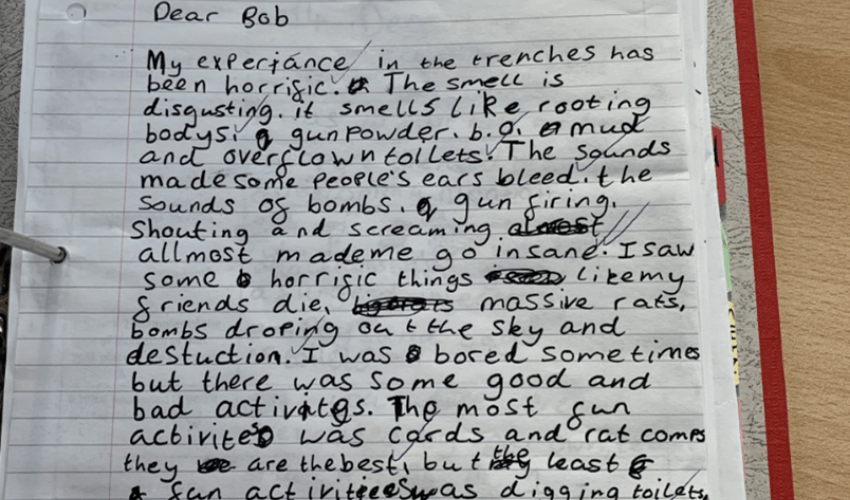 Dear Bob
My experiance in the trenches has
been horrific. The smell is
disgusting. it smells like rooting
bodys, gunpowder. b.o. mud
and overflown toilets. The sounds
made some people's ears bleed. the
sounds of bombs, gun firing.
Shouting and screaming
allmost made me go insane. I saw
some horrific things like my
friends die, massive rats,
bombs droping out the sky and
destuction. I was bored sometimes
but there was some good and
bad activites. The most fun
activites was cards and rat comps
they are the best, but the least
fun activitiees was digging toilets,